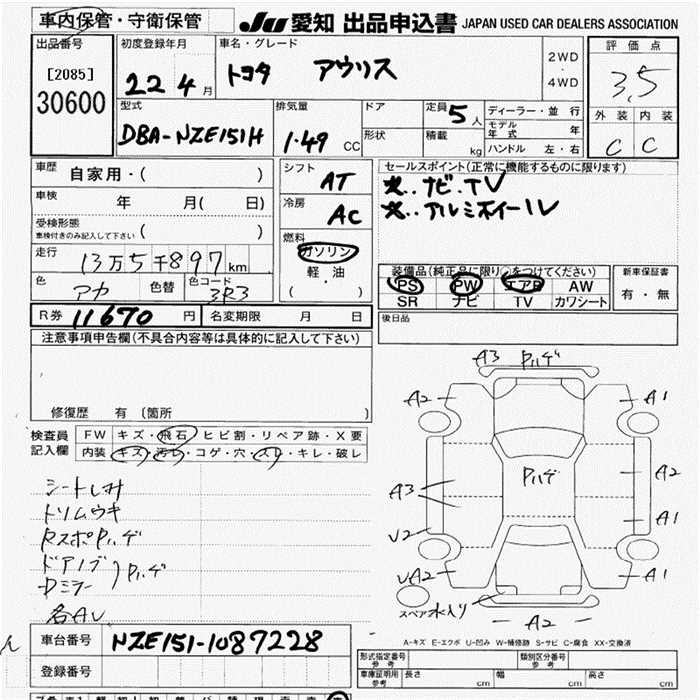 車内保管・守衛保管
JU 愛知 出品申込書 JAPAN USED CAR DEALERS ASSOCIATION
出品番号
[2085]
30600
初度登録年月
22 4月
車名・グレード
トヨタ アウリス
2WD
・
4WD
評価点
3,5
外装 内装
C C
型式
DBA-NZE151H
排気量
1.49 CC
ドア
形状
定員 5人
積載 kg
ディーラー・並行
モデル年式 年
ハンドル 左・右
車歴 自家用・( )
車検 年 月( 日)
受検形態
車検付きのみ記入して下さい ( )
走行 13万5千897km
色 アカ
色替
色コード 3R3
シフト AT
冷房 AC
燃料
ガソリン
軽・油
( ・ )
セールスポイント(正常に機能するものに限ります)
ナビ.TV
アルミホイール
装備品(純正品に限り○をつけてください)
PS PW エアB AW
SR ナビ TV カワシート
新車保証書
有・無
R券 11670 円
名変期限 月 日
後日品
注意事項申告欄(不具合内容等は具体的に記入して下さい)
修復歴 有 (箇所 )
検査員記入欄
FW キズ・飛石・ヒビ割・リペア跡・X要
内装 キズ・汚レ・コゲ・穴・スレ・キレ・破レ
シートしみ
トリムウキ
RスポPハゲ
ドアノブ
Dミラー
Pハゲ
名AU
A3 Pハゲ
A2 A1
Pハゲ
A3
A2
A1
V2
UA2
A1
スペア水入り
A2
A-キズ E-エクボ U-凹み W-補修跡 S-サビ C-腐食 XX-交換済
車台番号 NZE151-1087228
登録番号
形式指定番号 参考
類別区分番号 参考
車庫証明用 参考
長さ cm
幅 cm
高さ cm